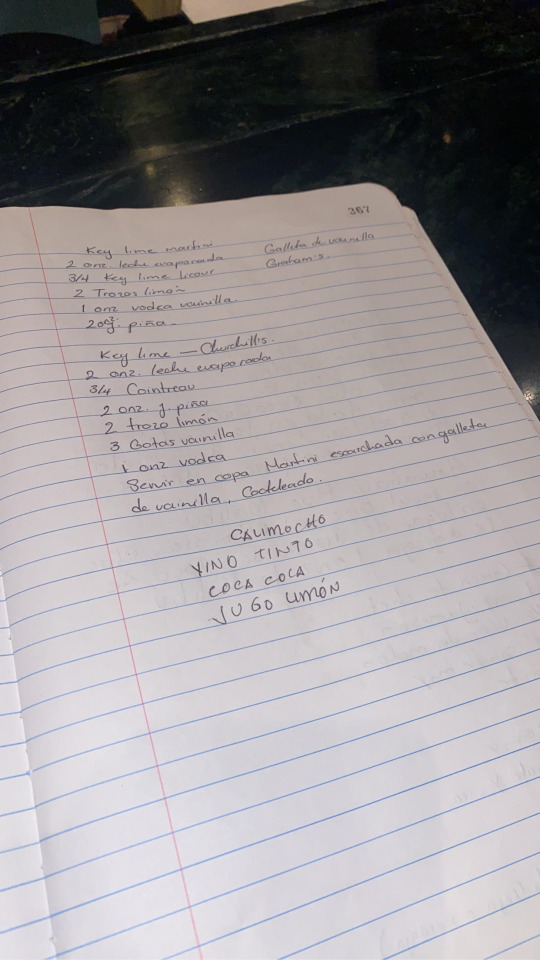 367
Key lime martini
2 onz. leche evaporada
3/4 Key lime licour
2 Trozos limón
1 onz vodca vainilla.
2 onz j. piña
Galleta de vainilla
Graham's.
Key lime — Churchillis.
2 onz. leche evaporada
3/4 Cointreau
2 onz. j. piña
2 trozo limón
3 Gotas vainilla
1 onz vodca
Servir en copa Martini escarchada con galleta
de vainilla, Cocteleado.
CALIMOCHO
VINO TINTO
COCA COLA
JUGO LIMÓN